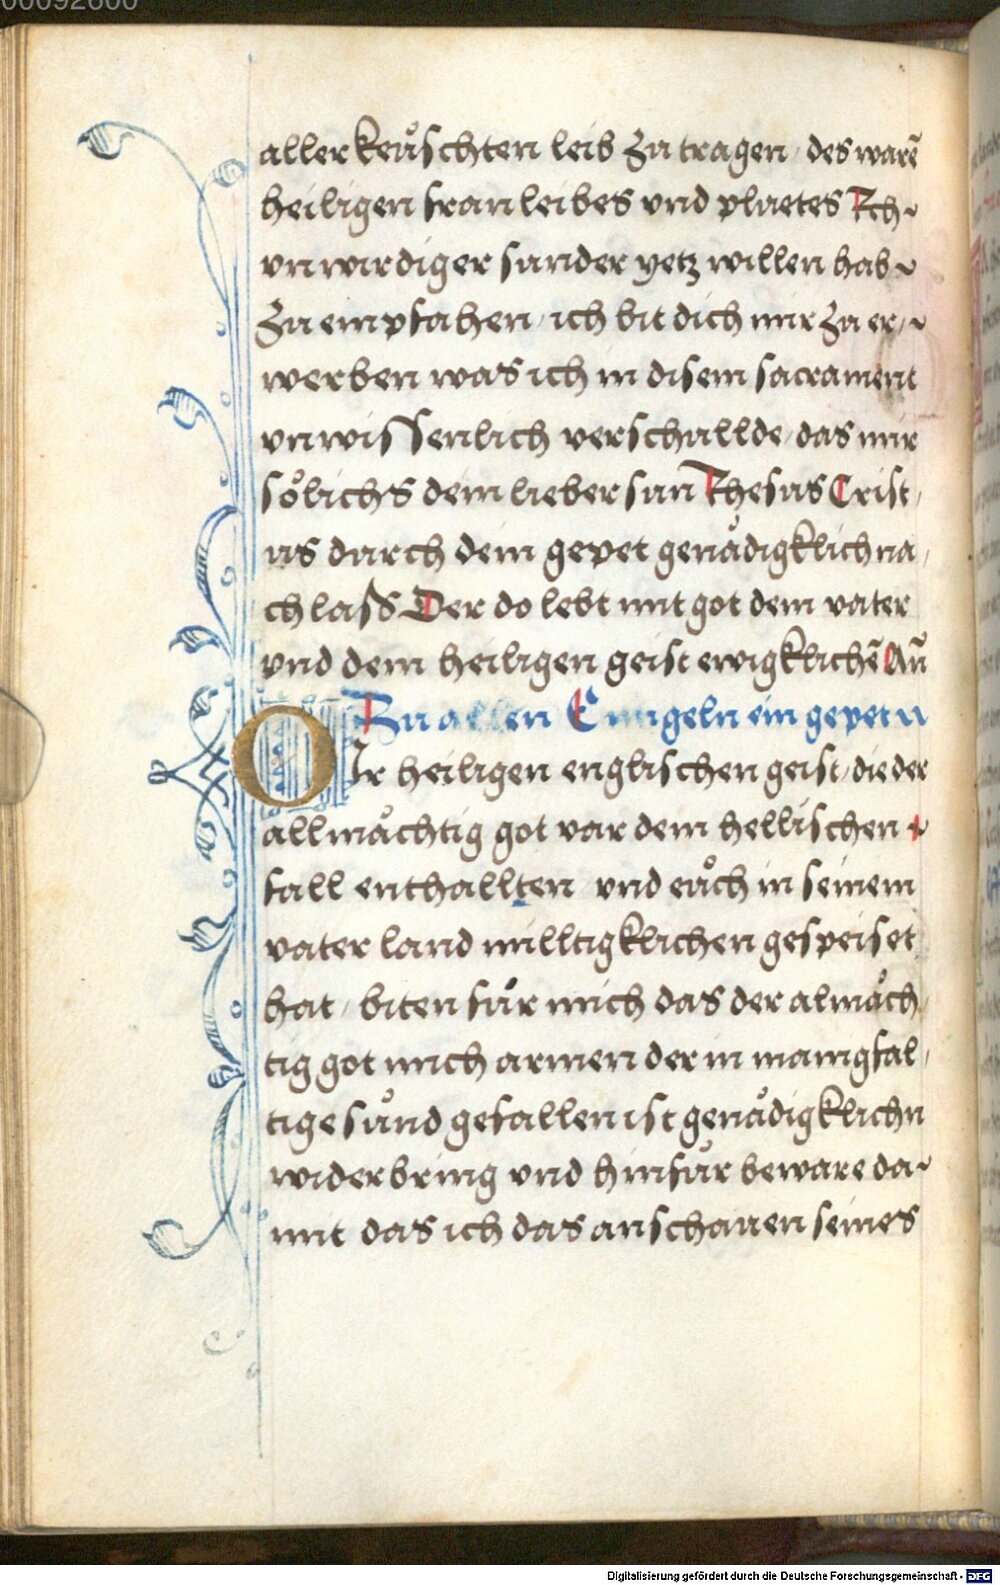 00092600
aller keůschten leib zu tragen / des warē
heiligen franleibes vnd pluetes Ich
vnwirdiger sunder yetz willen hab
zu empfahen / ich bit dich mir zu er /
werben was ich in disem sacrament
vnwissenlich verschullde / das mir
sölichs dein lieber sun Ihesus Crist /
us durch dein gepet genådigklich na /
ch lass Der do lebt mit got dem vater
vnd dem heiligen geist ewigklichē Am̄
Zu allen Enngeln ein gepet
O Ir heiligen englischen geist / die der
allmåchtig got var dem hellischen
fall enthallten vnd eůch in seinem
vater land milltigklichen gespeiset
hat / biten fůr mich das der almåch /
tig got mich armen der in manigfal /
tige sůnd gefallen ist genådigklichn
widerbring vnd hinfůr beware da
mit das ich das anschauen seines
Digitalisierung gefördert durch die Deutsche Forschungsgemeinschaft - DFG